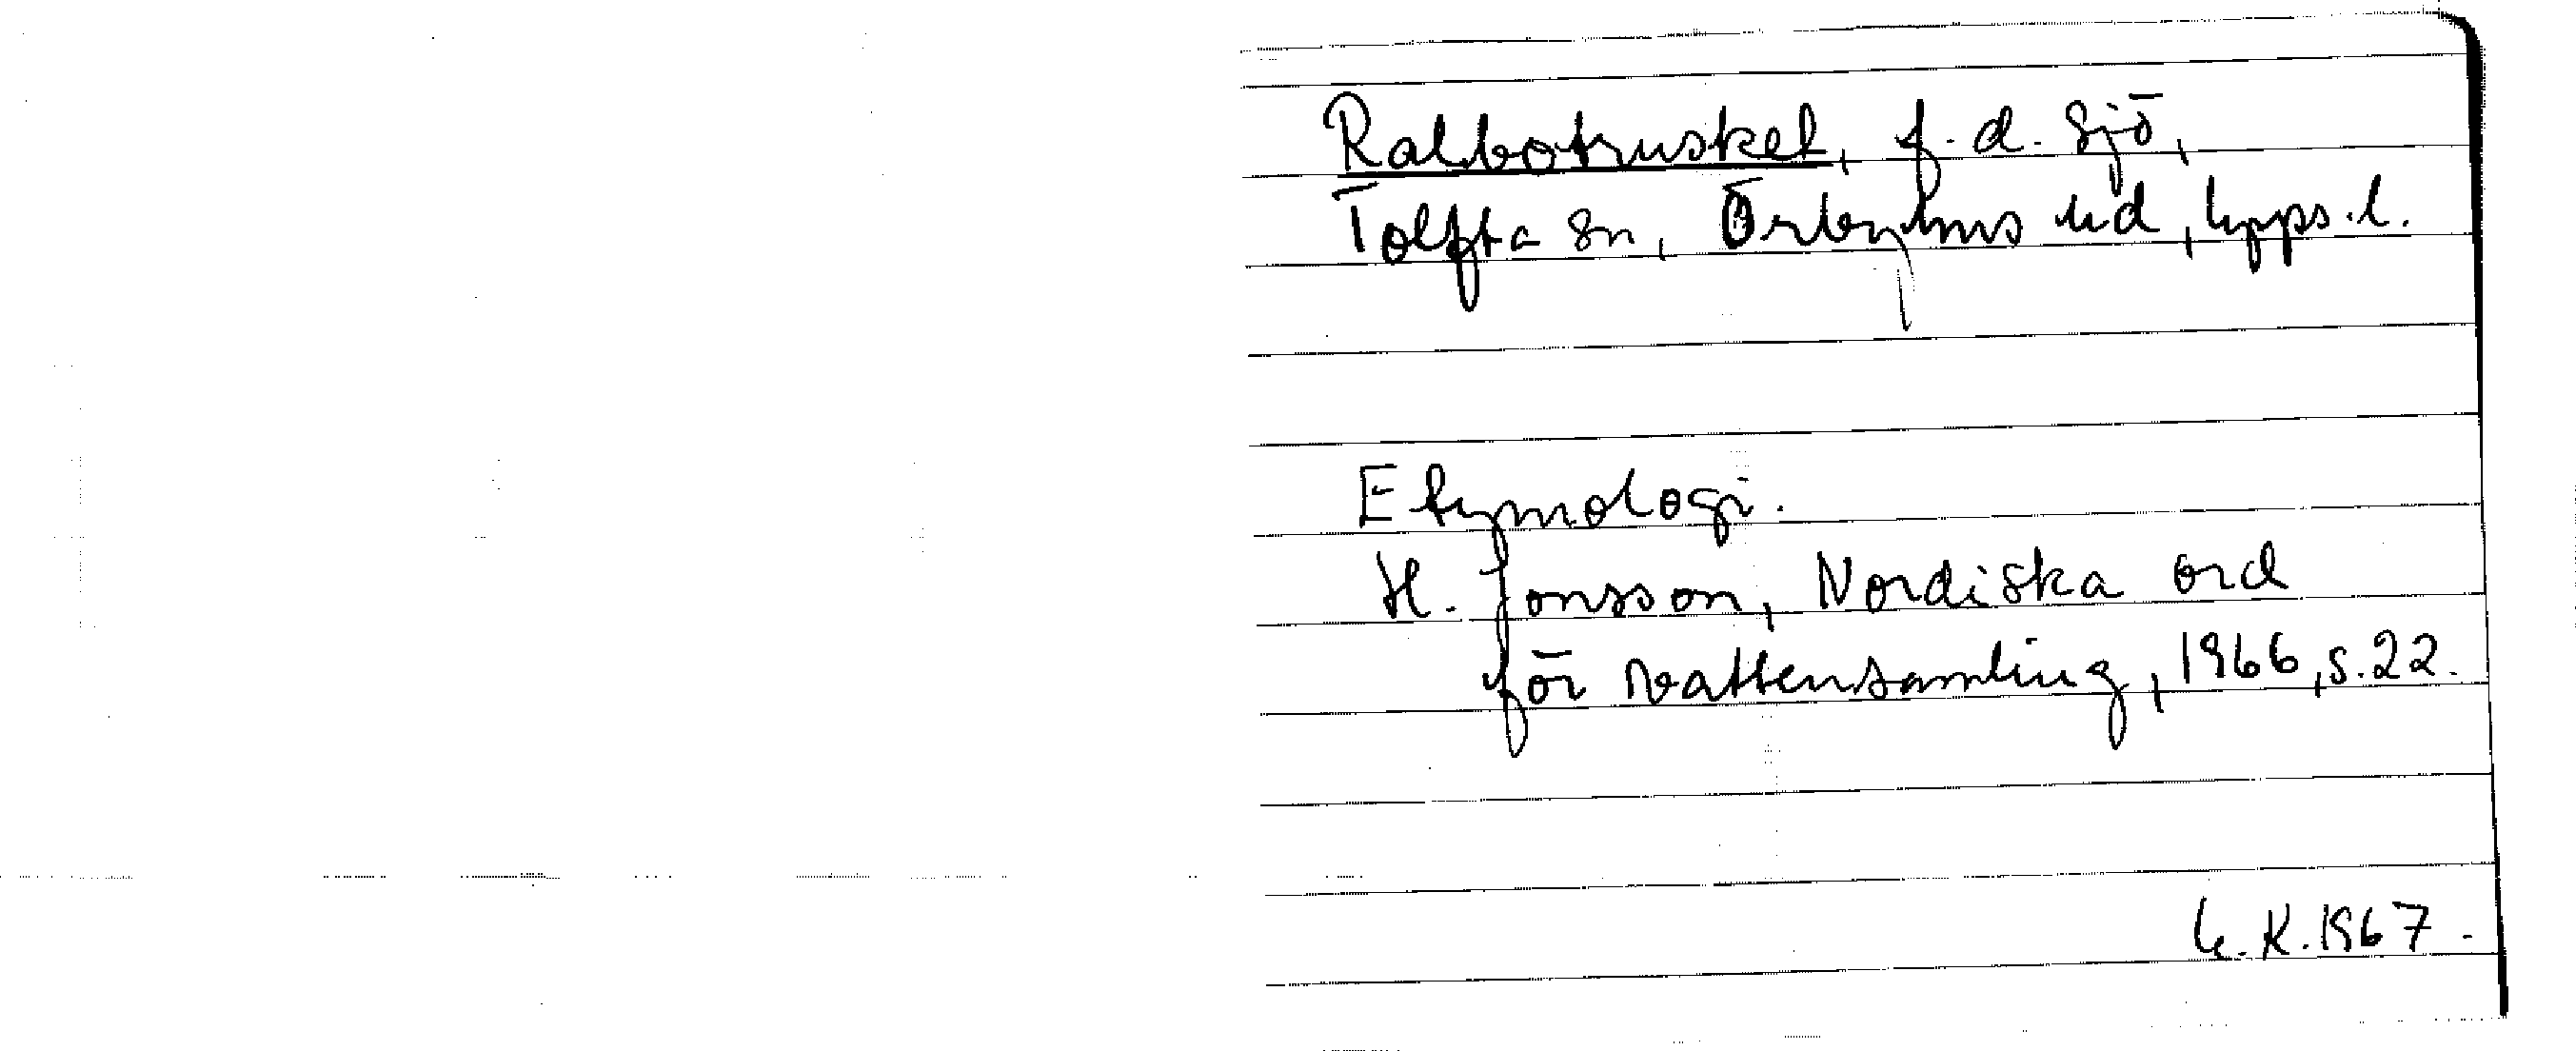 Ralbotruskel, f.d. sjö,
Tolfta sn, Örbyhus hd, Upps. l.
Etymologi.
H. Jonsson, Nordiska ord
för vattensamling, 1966, s. 22.
K. 1967.